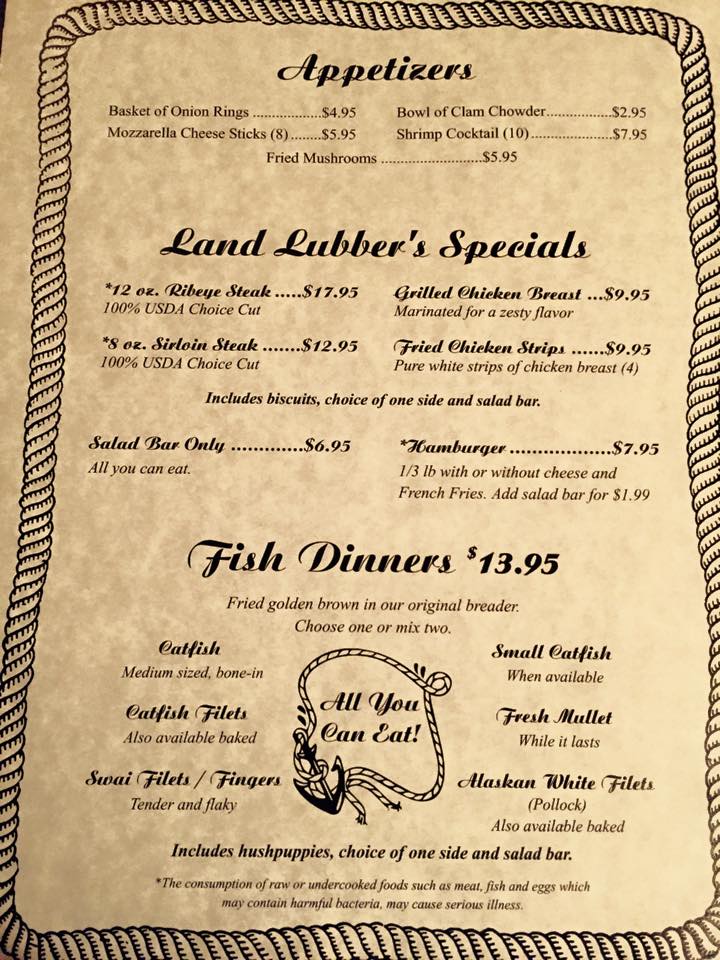 Appetizers
Basket of Onion Rings .................$4.95
Bowl of Clam Chowder................$2.95
Mozzarella Cheese Sticks (8)........$5.95
Shrimp Cocktail (10)....................$7.95
Fried Mushrooms .........................$5.95
Land Lubber's Specials
*12 oz. Ribeye Steak .....$17.95
100% USDA Choice Cut
Grilled Chicken Breast ...$9.95
Marinated for a zesty flavor
*8 oz. Sirloin Steak .......$12.95
100% USDA Choice Cut
Fried Chicken Strips ......$9.95
Pure white strips of chicken breast (4)
Includes biscuits, choice of one side and salad bar.
Salad Bar Only .............$6.95
All you can eat.
*Hamburger...................$7.95
1/3 lb with or without cheese and
French Fries. Add salad bar for $1.99
Fish Dinners $13.95
Fried golden brown in our original breader.
Choose one or mix two.
Catfish
Medium sized, bone-in
Catfish Filets
Also available baked
Swai Filets / Fingers
Tender and flaky
All You
Can Eat!
Small Catfish
When available
Fresh Mullet
While it lasts
Alaskan White Filets
(Pollock)
Also available baked
Includes hushpuppies, choice of one side and salad bar.
*The consumption of raw or undercooked foods such as meat, fish and eggs which
may contain harmful bacteria, may cause serious illness.